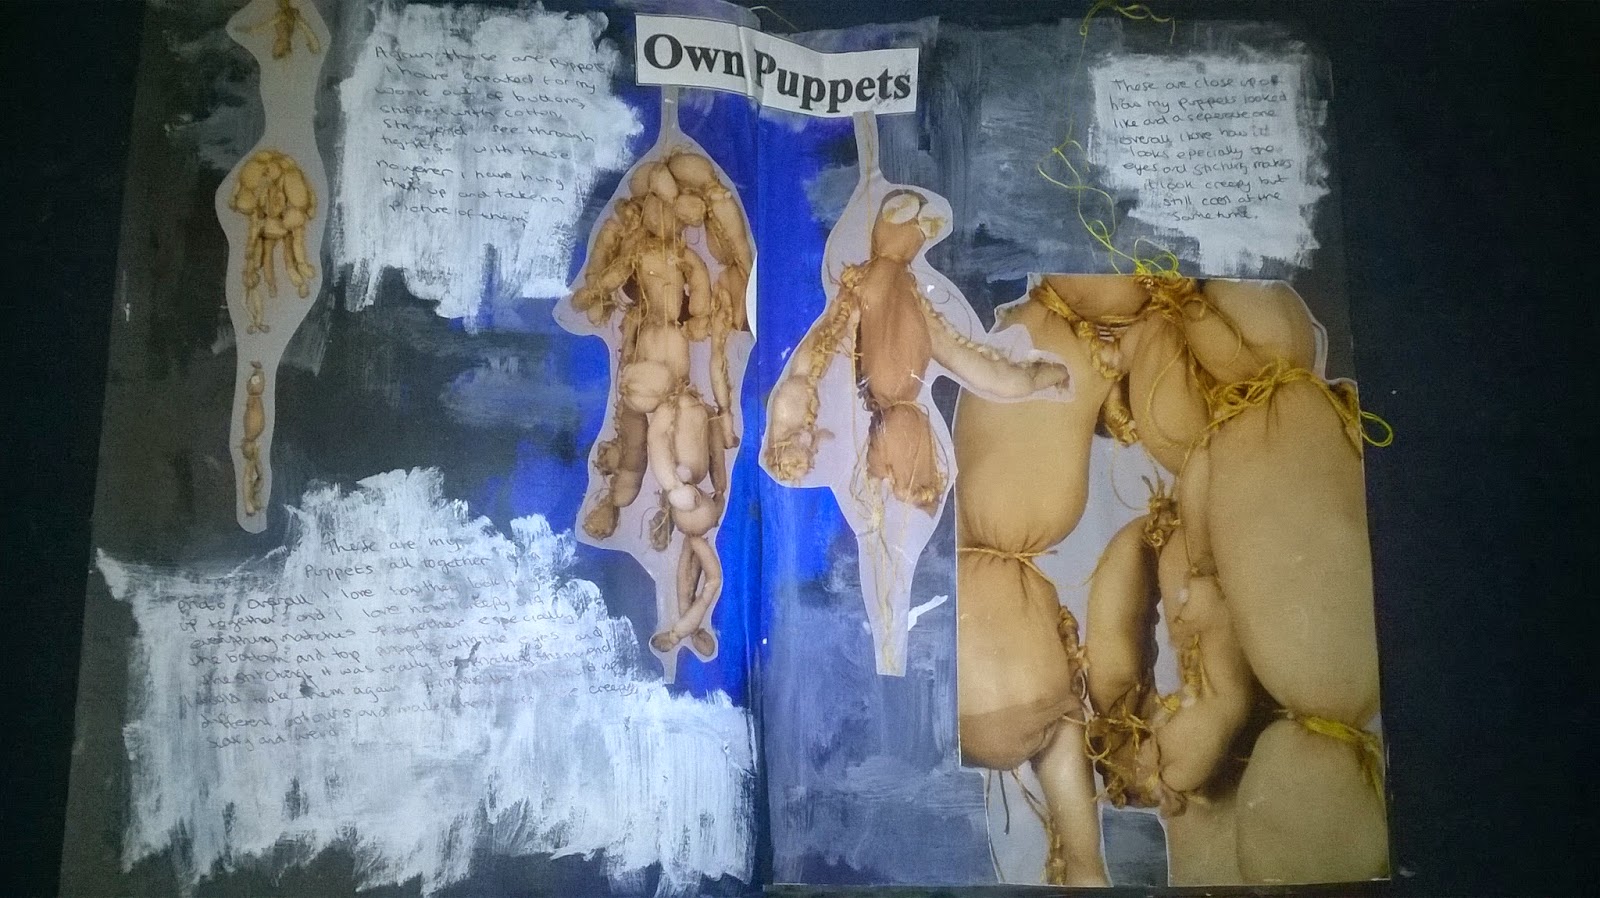 Own Puppets
Again these are puppets
I have created for my
work out of buttons,
stuffed with cotton
string and see through
tights. with these
however I have hung
them up and taken a
picture of them
These are close up of
how my puppets looked
like and a seperate one
overall I love how it
looks epecially the
eyes and stitching makes
it look creepy but
still cool at the
same time.
These are my
Puppets all together
photo overall I love how they look hung
up together and I love how creepy
everything matches up together especially
the bottom and top puppet with the eyes and
the stitching. It was really fun making them and
I would make them again
different colours and make them creepy
scary and weird